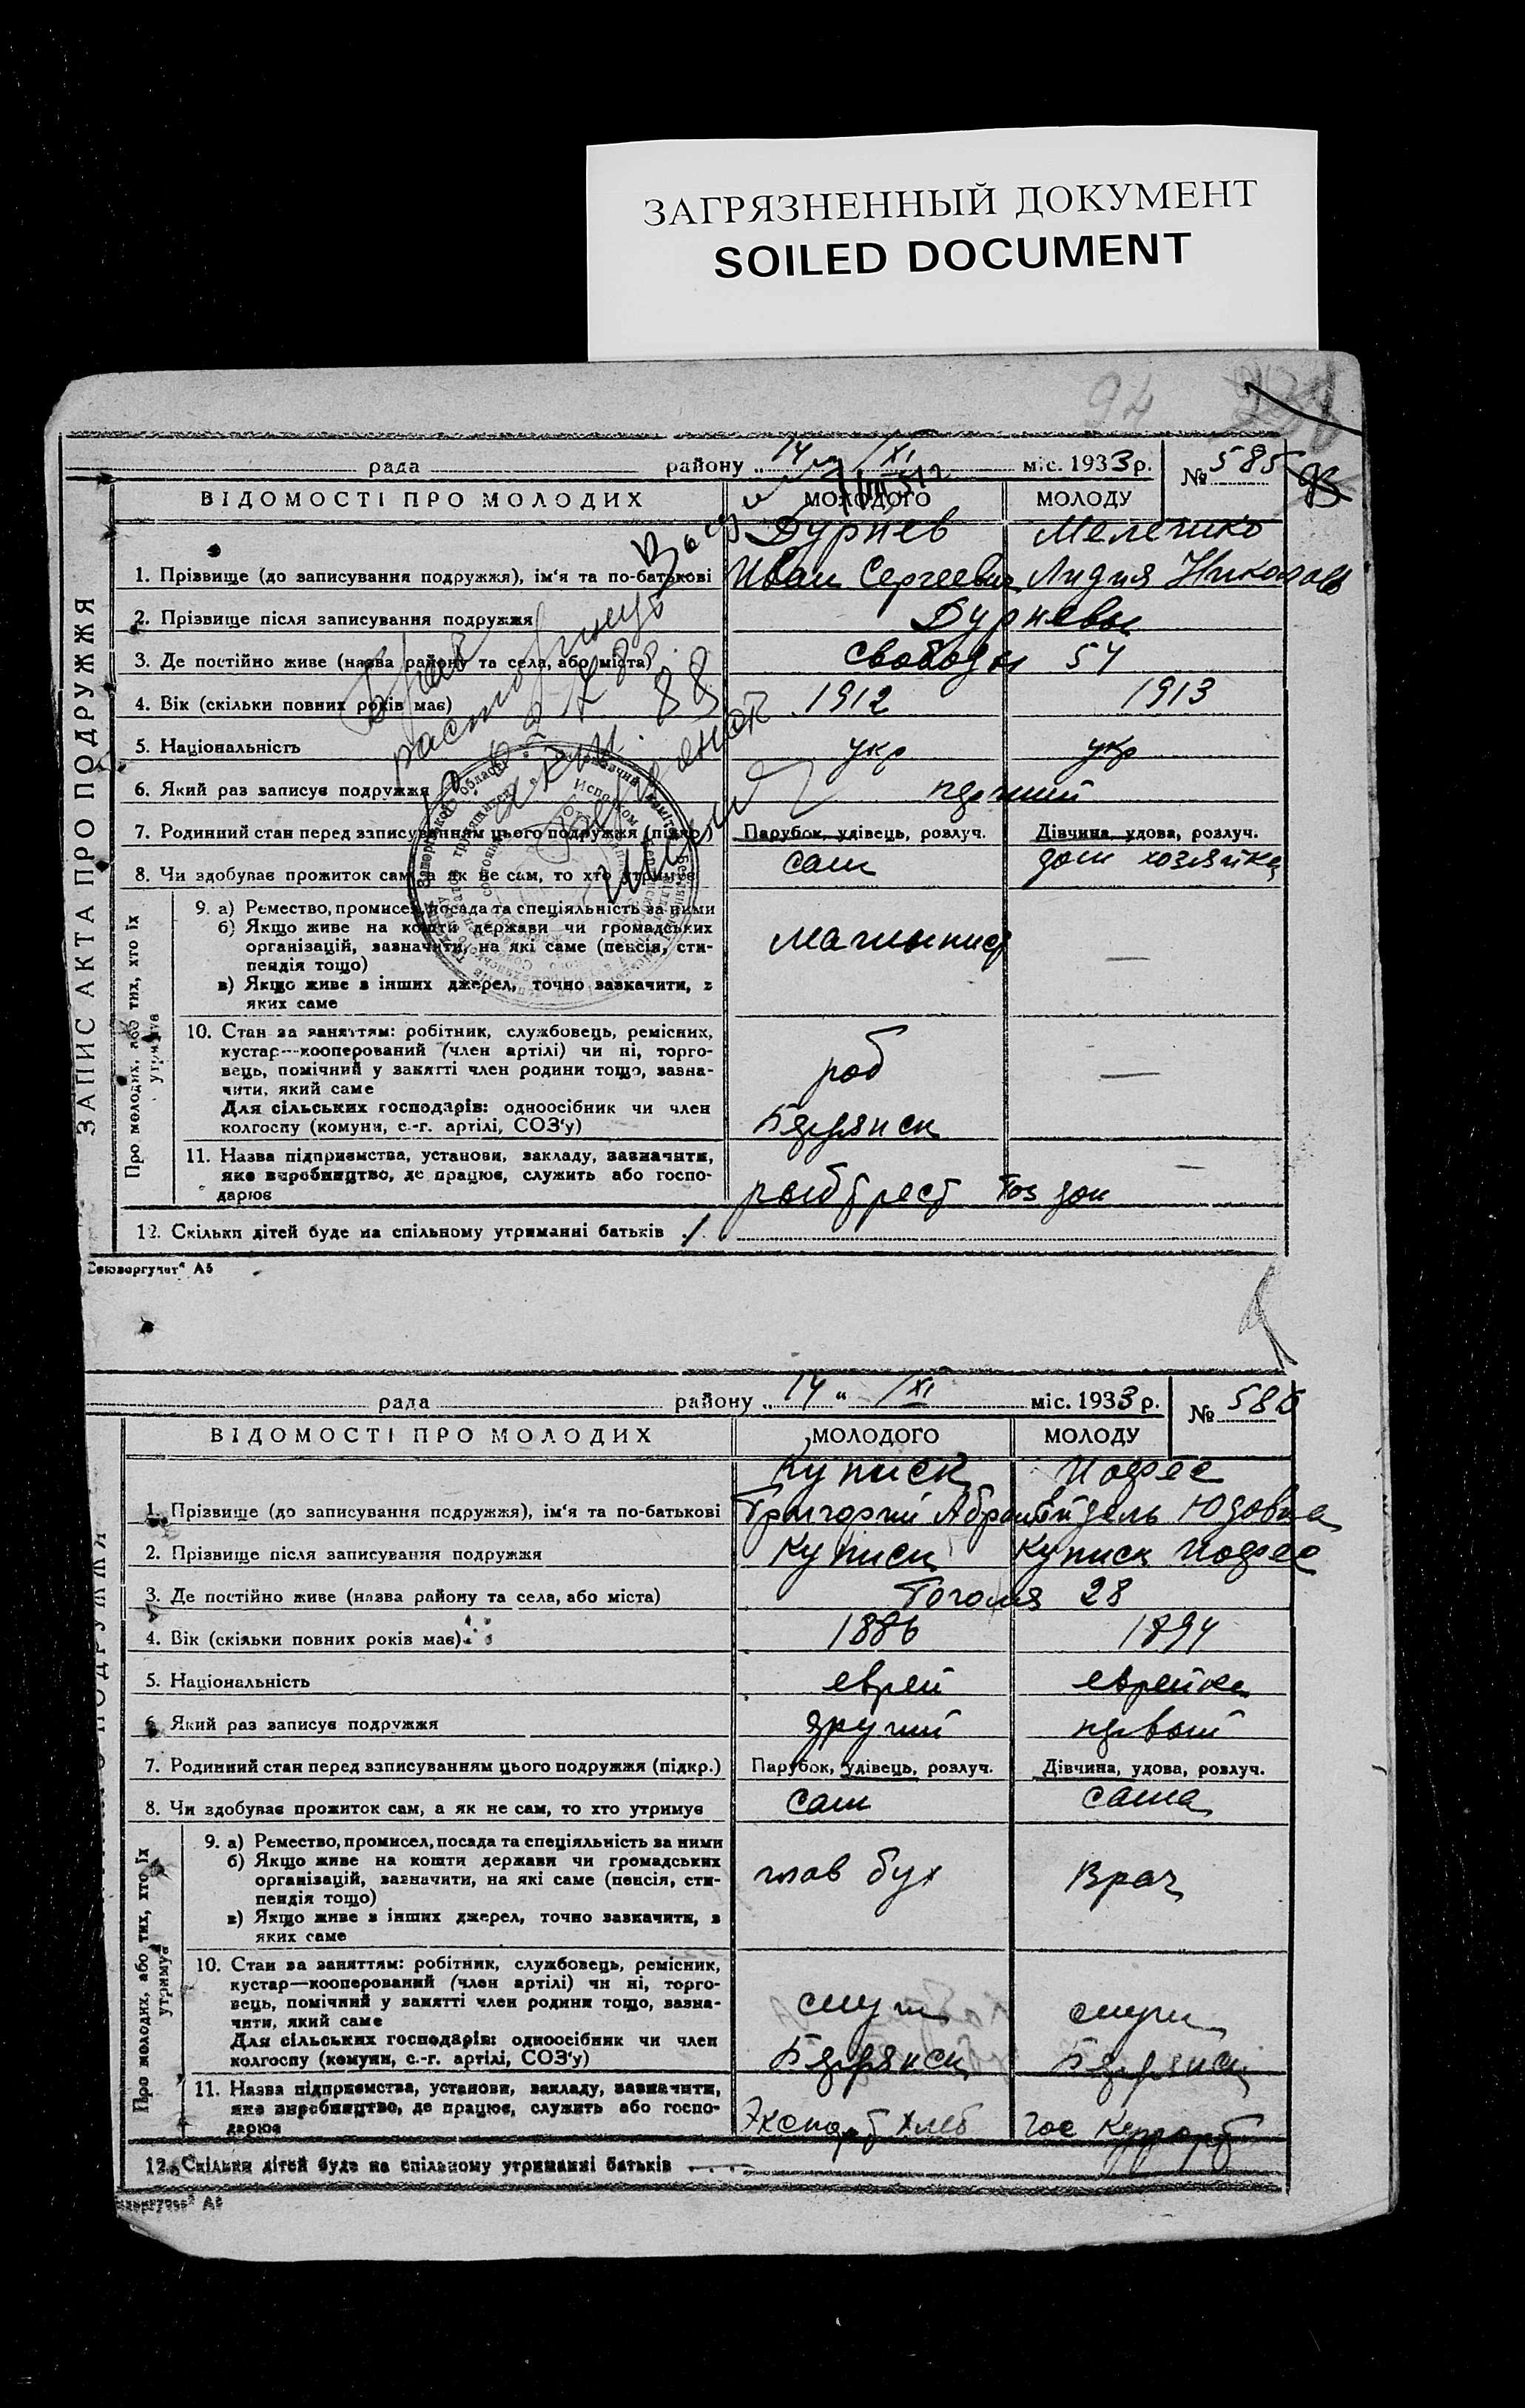 ЗАГРЯЗНЕННЫЙ ДОКУМЕНТ
SOILED DOCUMENT
94
рада району „ 14 " XI міс. 1933 р. № 585
ВІДОМОСТІ ПРО МОЛОДИХ МОЛОДОГО МОЛОДУ
Дурнев
1. Прізвище (до записування подружжя), ім'я та по-батькові Иван Сергеевич Лидия Николаев
2. Прізвище після записування подружжя Дурневы
3. Де постійно живе (назва району та села, або міста) Свободы 54
4. Вік (скільки повних років має) 1912 1913
5. Національність укр укр
6. Який раз записує подружжя
7. Родинний стан перед записуванням цього подружжя (підкр.) Парубок, удівець, розлуч. Дівчина, удова, розлуч.
8. Чи здобуває прожиток сам, а як не сам, то хто утримує сам дом хозяйка
9. а) Ремество, промисел, посада та спеціяльність за ними
б) Якщо живе на кошти держави чи громадських
організацій, зазначити, на які саме (пенсія, сти-
пендія тощо)
в) Якщо живе з інших джерел, точно зазначити, з
яких саме
машинист —
10. Стан за заняттям: робітник, службовець, ремісник,
кустар—кооперований (член артілі) чи ні, торго-
вець, помічний у занятті член родини тощо, зазна-
чити, який саме
раб —
Для сільських господарів: одноосібник чи член
колгоспу (комуни, с.-г. артілі, СОЗ'у) Бердянск
11. Назва підприємства, установи, закладу, зазначити,
яке виробництво, де працює, служить або госпо-
дарює рыбтрест
12. Скільки дітей буде на спільному утриманні батьків
ЗАПИС АКТА ПРО ПОДРУЖЖЯ
Про молодих, або тих, хто їх утримує
Брак
расторгнут
Союзоргучет" А5
рада району „ 14 " XI міс. 1933 р. № 586
ВІДОМОСТІ ПРО МОЛОДИХ МОЛОДОГО МОЛОДУ
Куписк Иоффе
1. Прізвище (до записування подружжя), ім'я та по-батькові Григорий Абрам Юдовна
2. Прізвище після записування подружжя Куписк Куписк Иоффе
3. Де постійно живе (назва району та села, або міста) Гоголя 28
4. Вік (скільки повних років має) 1886 1894
5. Національність еврей еврейка
6. Який раз записує подружжя другий первый
7. Родинний стан перед записуванням цього подружжя (підкр.) Парубок, удівець, розлуч. Дівчина, удова, розлуч.
8. Чи здобуває прожиток сам, а як не сам, то хто утримує сам сама
9. а) Ремество, промисел, посада та спеціяльність за ними
б) Якщо живе на кошти держави чи громадських
організацій, зазначити, на які саме (пенсія, сти-
пендія тощо)
в) Якщо живе з інших джерел, точно зазначити, з
яких саме
глав бух Врач
10. Стан за заняттям: робітник, службовець, ремісник,
кустар—кооперований (член артілі) чи ні, торго-
вець, помічний у занятті член родини тощо, зазна-
чити, який саме
служ служ
Для сільських господарів: одноосібник чи член
колгоспу (комуни, с.-г. артілі, СОЗ'у) Бердянск Бердянск
11. Назва підприємства, установи, закладу, зазначити,
яке виробництво, де працює, служить або госпо-
дарює Экспорт хлеб Гос Курорт
12. Скільки дітей буде на спільному утриманні батьків —
Про молодих, або тих, хто їх утримує